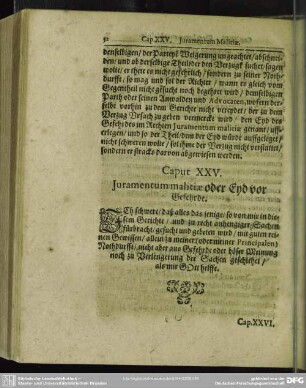 52 Cap. XXV. Juramentum Malitiæ.
derselbigen / der Partey Weigerung ungeachtet / abschnei-
den / und ob derselbige Theil oder den Verzugk sucher / sagen
wolte / er thete es nicht gefehrlich / sondern zu seiner Noth-
durfft / so mag und sol der Richter / wann es gleich vom
Gegentheil nicht gesucht noch begehret wird / demselbigen
Parth oder seinen Anwalden und Advocaten, wofern der-
selbe vorhin zu dem Gerichte nicht vereydet / der zu dem
Verzug Vrsach zu geben vermerckt wird / den Eyd des
Gefehrdes im Rechten Juramentum malitiæ genant / auff-
erlegen / und so der Theil / dem der Eyd würde aufferleget /
nicht schweren wolte / sol ihme der Verzug nicht verstattet /
sondern er stracks darvon abgewiesen werden.
Caput XXV.
Juramentum malitiæ oder Eyd vor
Gefehrde.
ICh schwere / daß alles das jenige / so von mir in die-
sem Gerichte / und zu recht anhengiger Sachen
fürbracht / gesucht und gebeten wird / mit guten rei-
nen Gewissen / allein zu meiner (oder meiner Principalen)
Nothdurfft / nicht aber aus Gefehrde oder böser Meinung
noch zu Verlengerung der Sachen geschiehet /
als mir GOtt helffe.
Cap. XXVI.